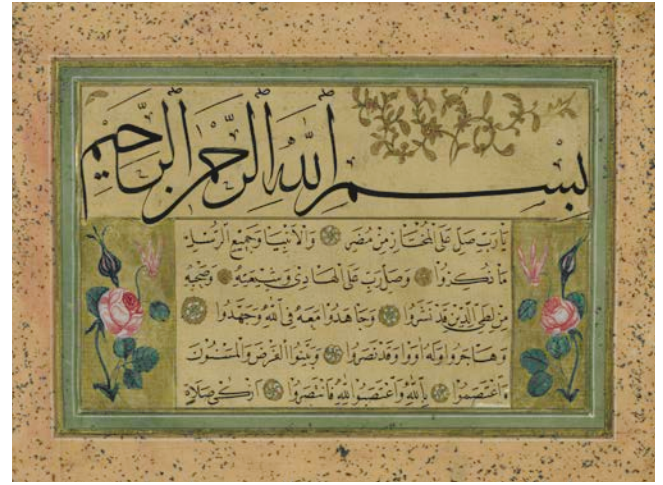 بِسْمِ اللهِ الرَّحْمٰنِ الرَّحِيْمِ
يَا رَبِّ صَلِّ عَلَى الْمُخْتَارِ مِنْ مُضَرٍ وَالْاَنْبِيَا وَجَمِيْعِ الرُّسْلِ
مَا ذُكِرُوْا وَصَلِّ رَبِّ عَلَى الْهَادِىْ وَشِيْعَتِهٖ وَصَحْبِهٖ
مِنْ لِطَىِّ الدِّيْنِ قَدْ نَشَرُوْا وَجَاهَدُوْا مَعَهُ فِى اللهِ وَجْتَهَدُوْا
وَهَاجَرُوْا وَلَهُ اٰوَوْا وَقَدْ نَصَرُوْا وَبَيَّنُوا الْفَرْضَ وَالْمَسْنُوْنَ
وَاعْتَصَمُوْا بِاللهِ وَاعْتَصَبُوْا لِلّٰهِ فَانْتَصَرُوْا اَزْكٰى صَلَاةٍ